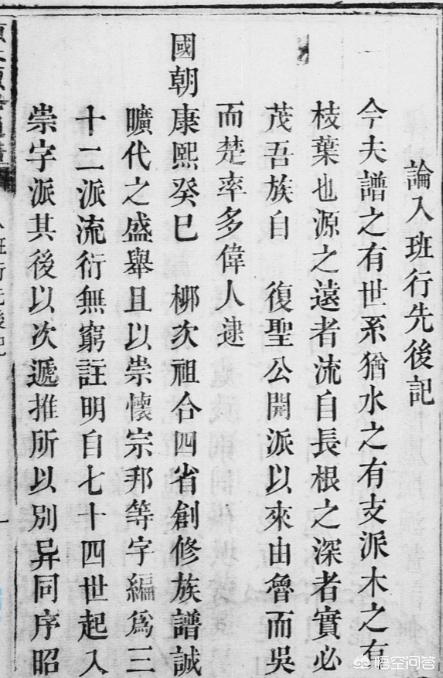 論入班行先後記
今夫譜之有世系猶水之有支派木之有
枝葉也源之遠者流自長根之深者實必
茂吾族自 復聖公開派以來由魯而吳
而楚率多偉人逮
國朝康熙癸巳 梛次祖合四省創修族譜誠
曠代之盛舉且以崇懷宗邦等字編爲三
十二派流衍無窮註明自七十四世起入
崇字派其後以次遞推所以別异同序昭
悟空问答